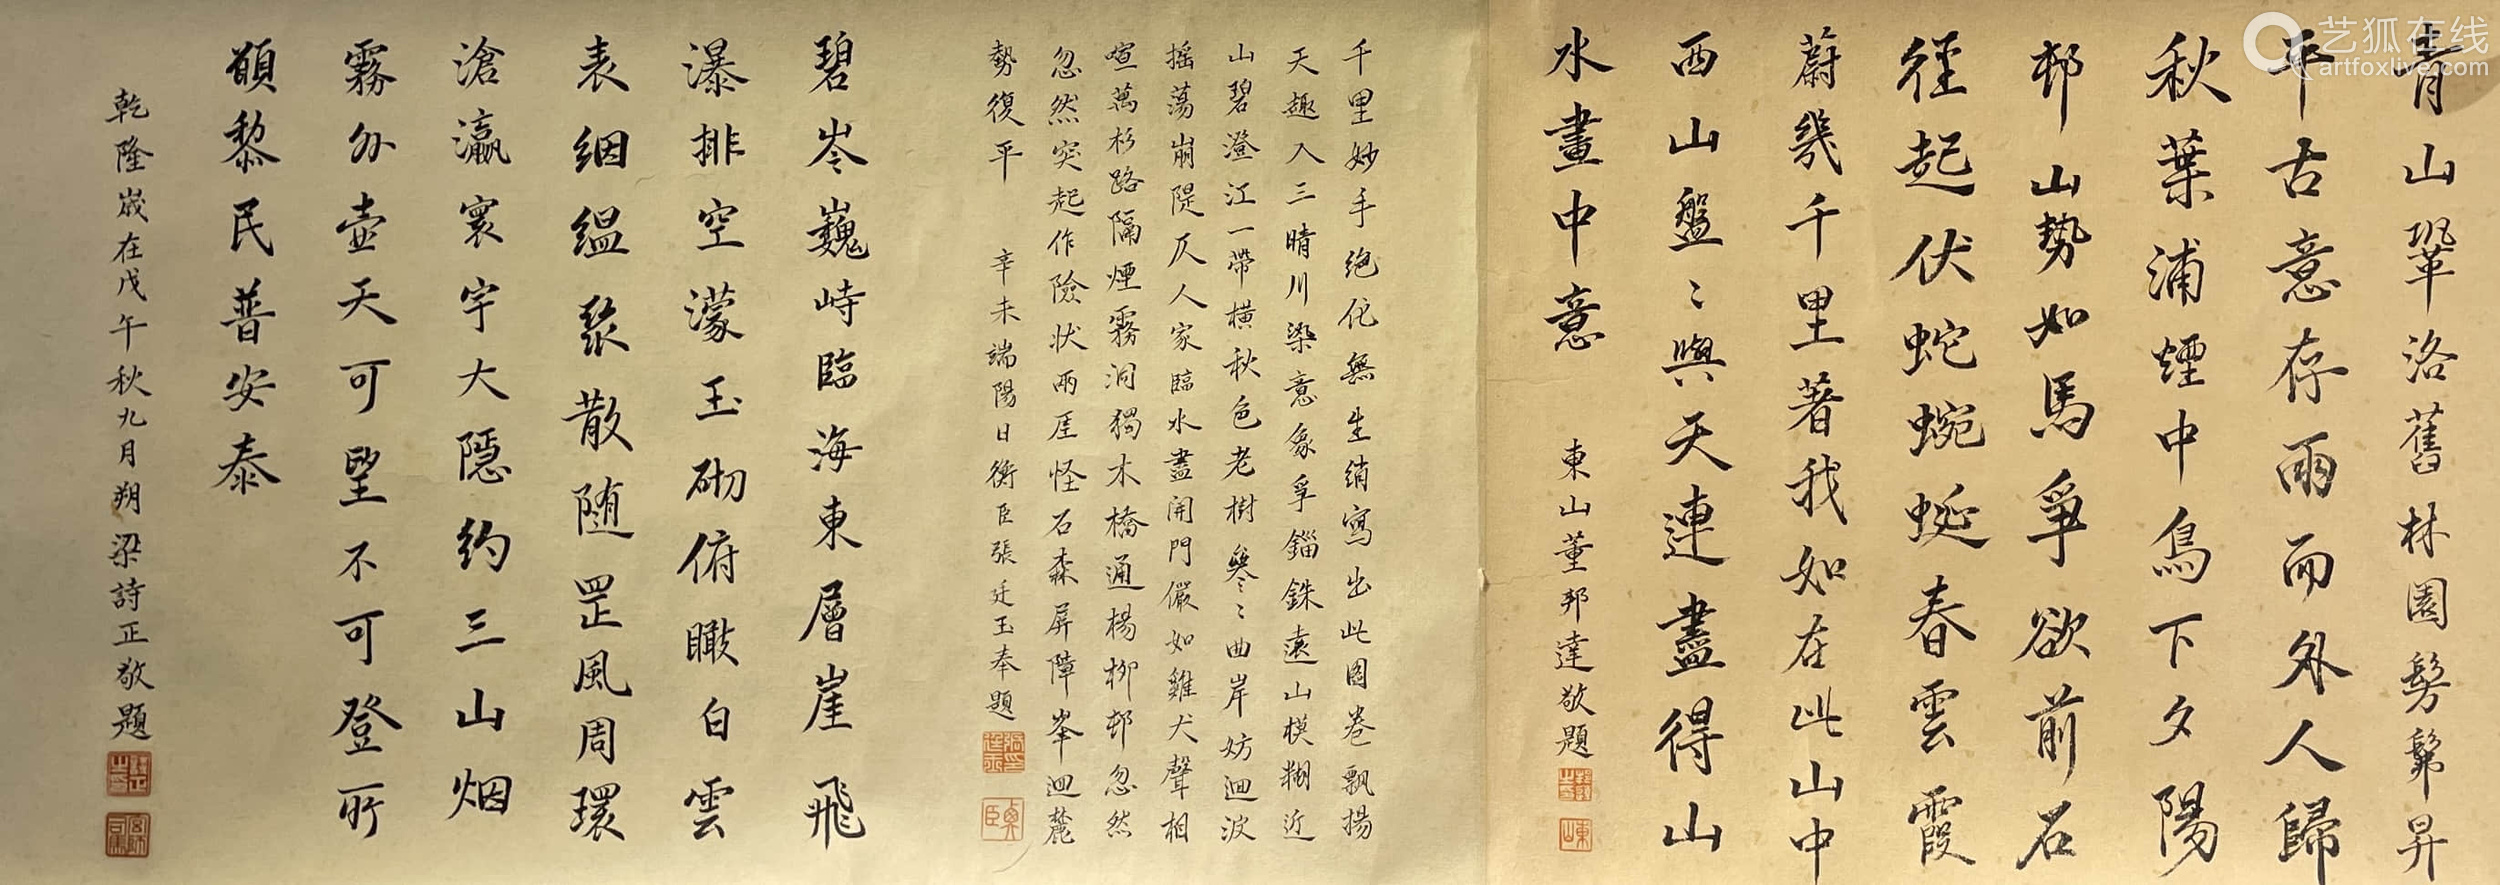 青山鞏洛舊林園髣髴昇
平古意存雨而外人歸
秋葉浦煙中鳥下夕陽
邨山勢如馬爭欲前石
徑起伏蛇蜿蜒春雲霞
蔚幾千里著我如在此山中
西山盤〻與天連盡得山
水畫中意
東山董邦達敬題
千里妙手絶佗無生綃寫出此圖卷飄揚
天趣入三晴川染意象乎錙銖遠山模糊近
山碧澄江一帶橫秋色老樹參〻曲岸妨迴波
搖蕩崩隄仄人家臨水盡開門儼如雞犬聲相
喧萬杉路隔煙霧洞獨木橋通楊柳邨忽然
忽然突起作險狀兩厓怪石森屏障峯迴麓
勢復平
辛未端陽日衡臣張廷玉奉題
碧岑巍峙臨海東層崖飛
瀑排空濛玉砌俯瞰白雲
表絪縕聚散随罡風周環
滄瀛寰宇大隱約三山烟
霧外壺天可望不可登所
願黎民普安泰
乾隆歲在戊午秋九月朔梁詩正敬題
艺狐在线
artfoxlive.com